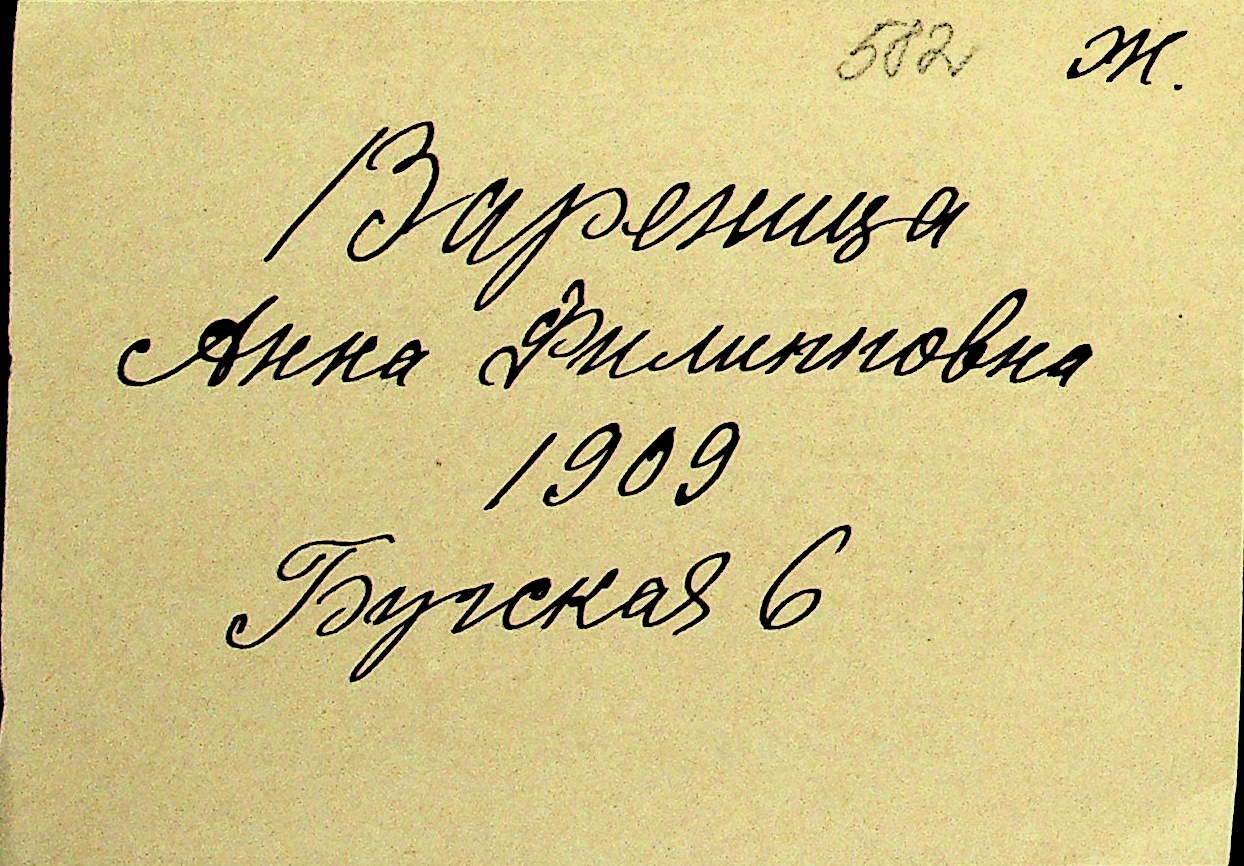 582 Ж.
Вареница
Анна Филипповна
1909
Бугская 6